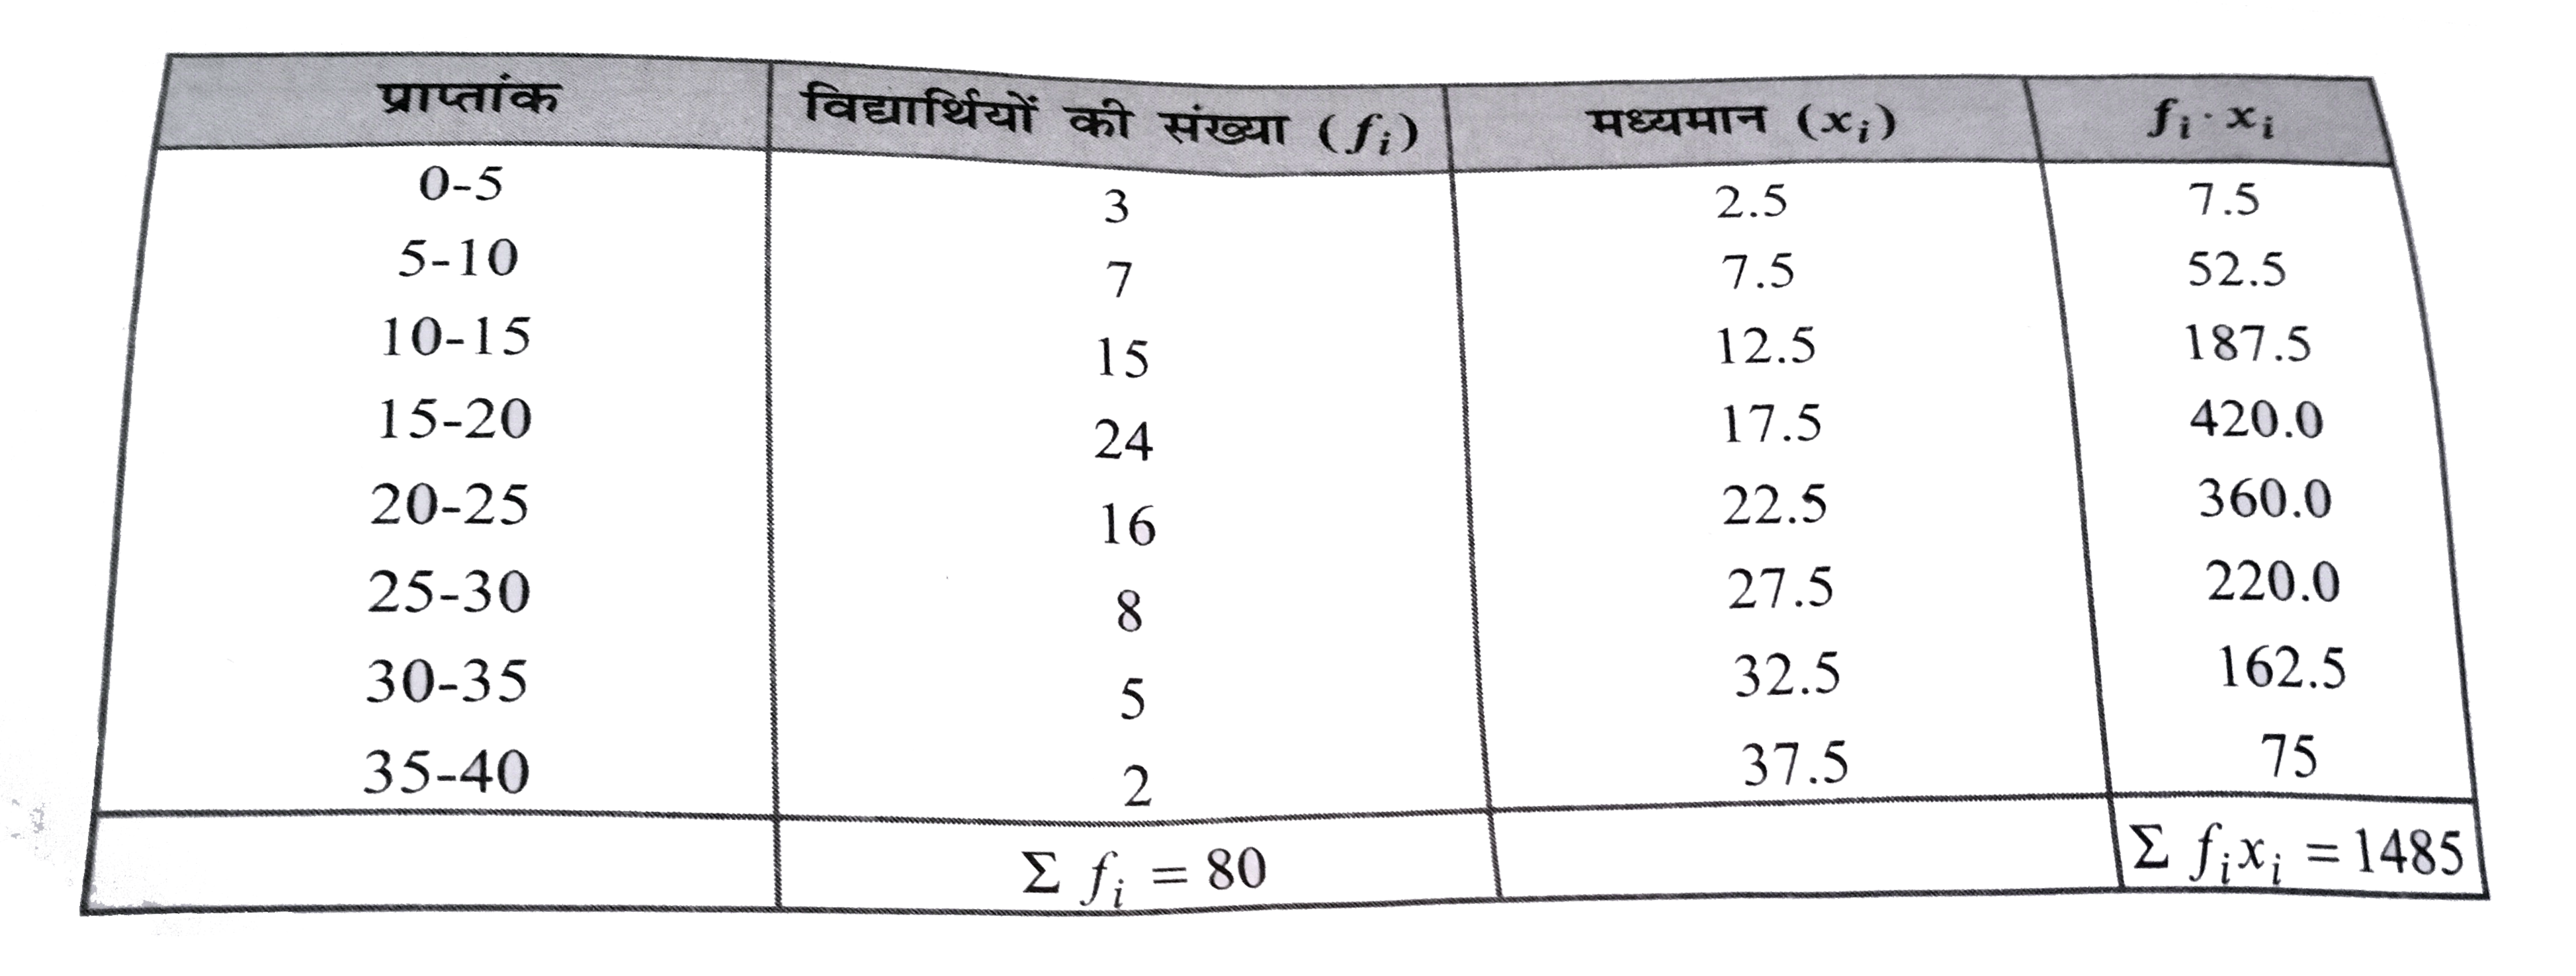 प्राप्तांक विद्यार्थियों की संख्या (fᵢ) मध्यमान (xᵢ) fᵢ · xᵢ
0-5 3 2.5 7.5
5-10 7 7.5 52.5
10-15 15 12.5 187.5
15-20 24 17.5 420.0
20-25 16 22.5 360.0
25-30 8 27.5 220.0
30-35 5 32.5 162.5
35-40 2 37.5 75
Σ fᵢ = 80 Σ fᵢxᵢ = 1485